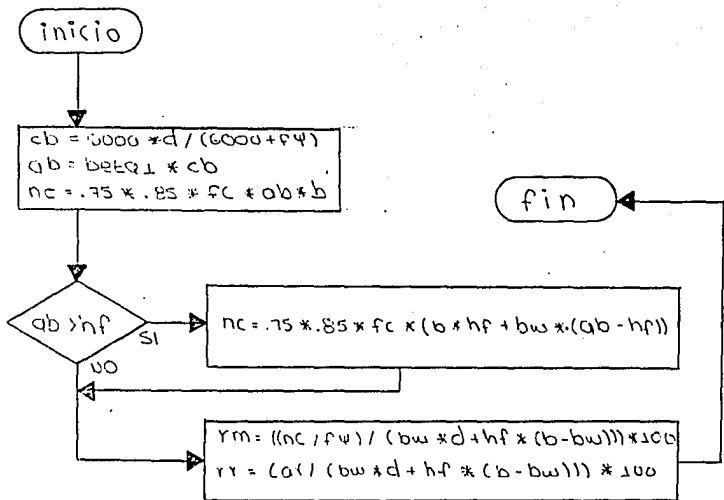 inicio
cb = 6000 *d / (6000+fy)
ab= beta1 * cb
nc = .75 * .85 * fc * ab*b
fin
ab >hf
SI
NO
nc = .75 *.85 * fc * (b * hf + bw *(ab - hf))
rm= ((nc / fy) / (bw *d + hf * (b-bw))) *100
rr = (as/ (bw *d + hf * (b-bw))) * 100